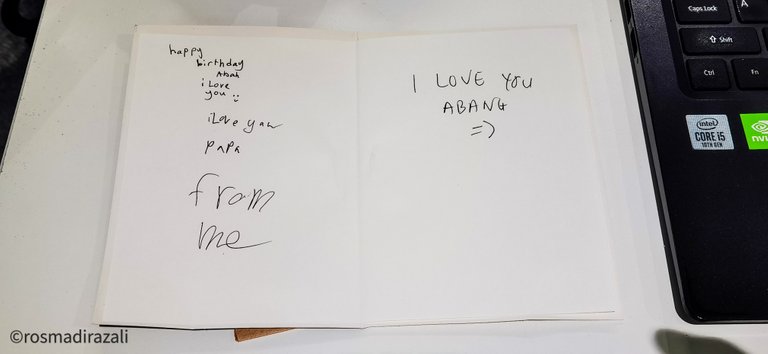 happy
birthday
Abah
i Love
you :)
iLove yaw
PAPA
from
me
I LOVE YOU
ABANG
=)
Caps Lock
A
⇧ Shift
Ctrl
Fn
intel
CORE i5
10TH GEN
©rosmadirazali